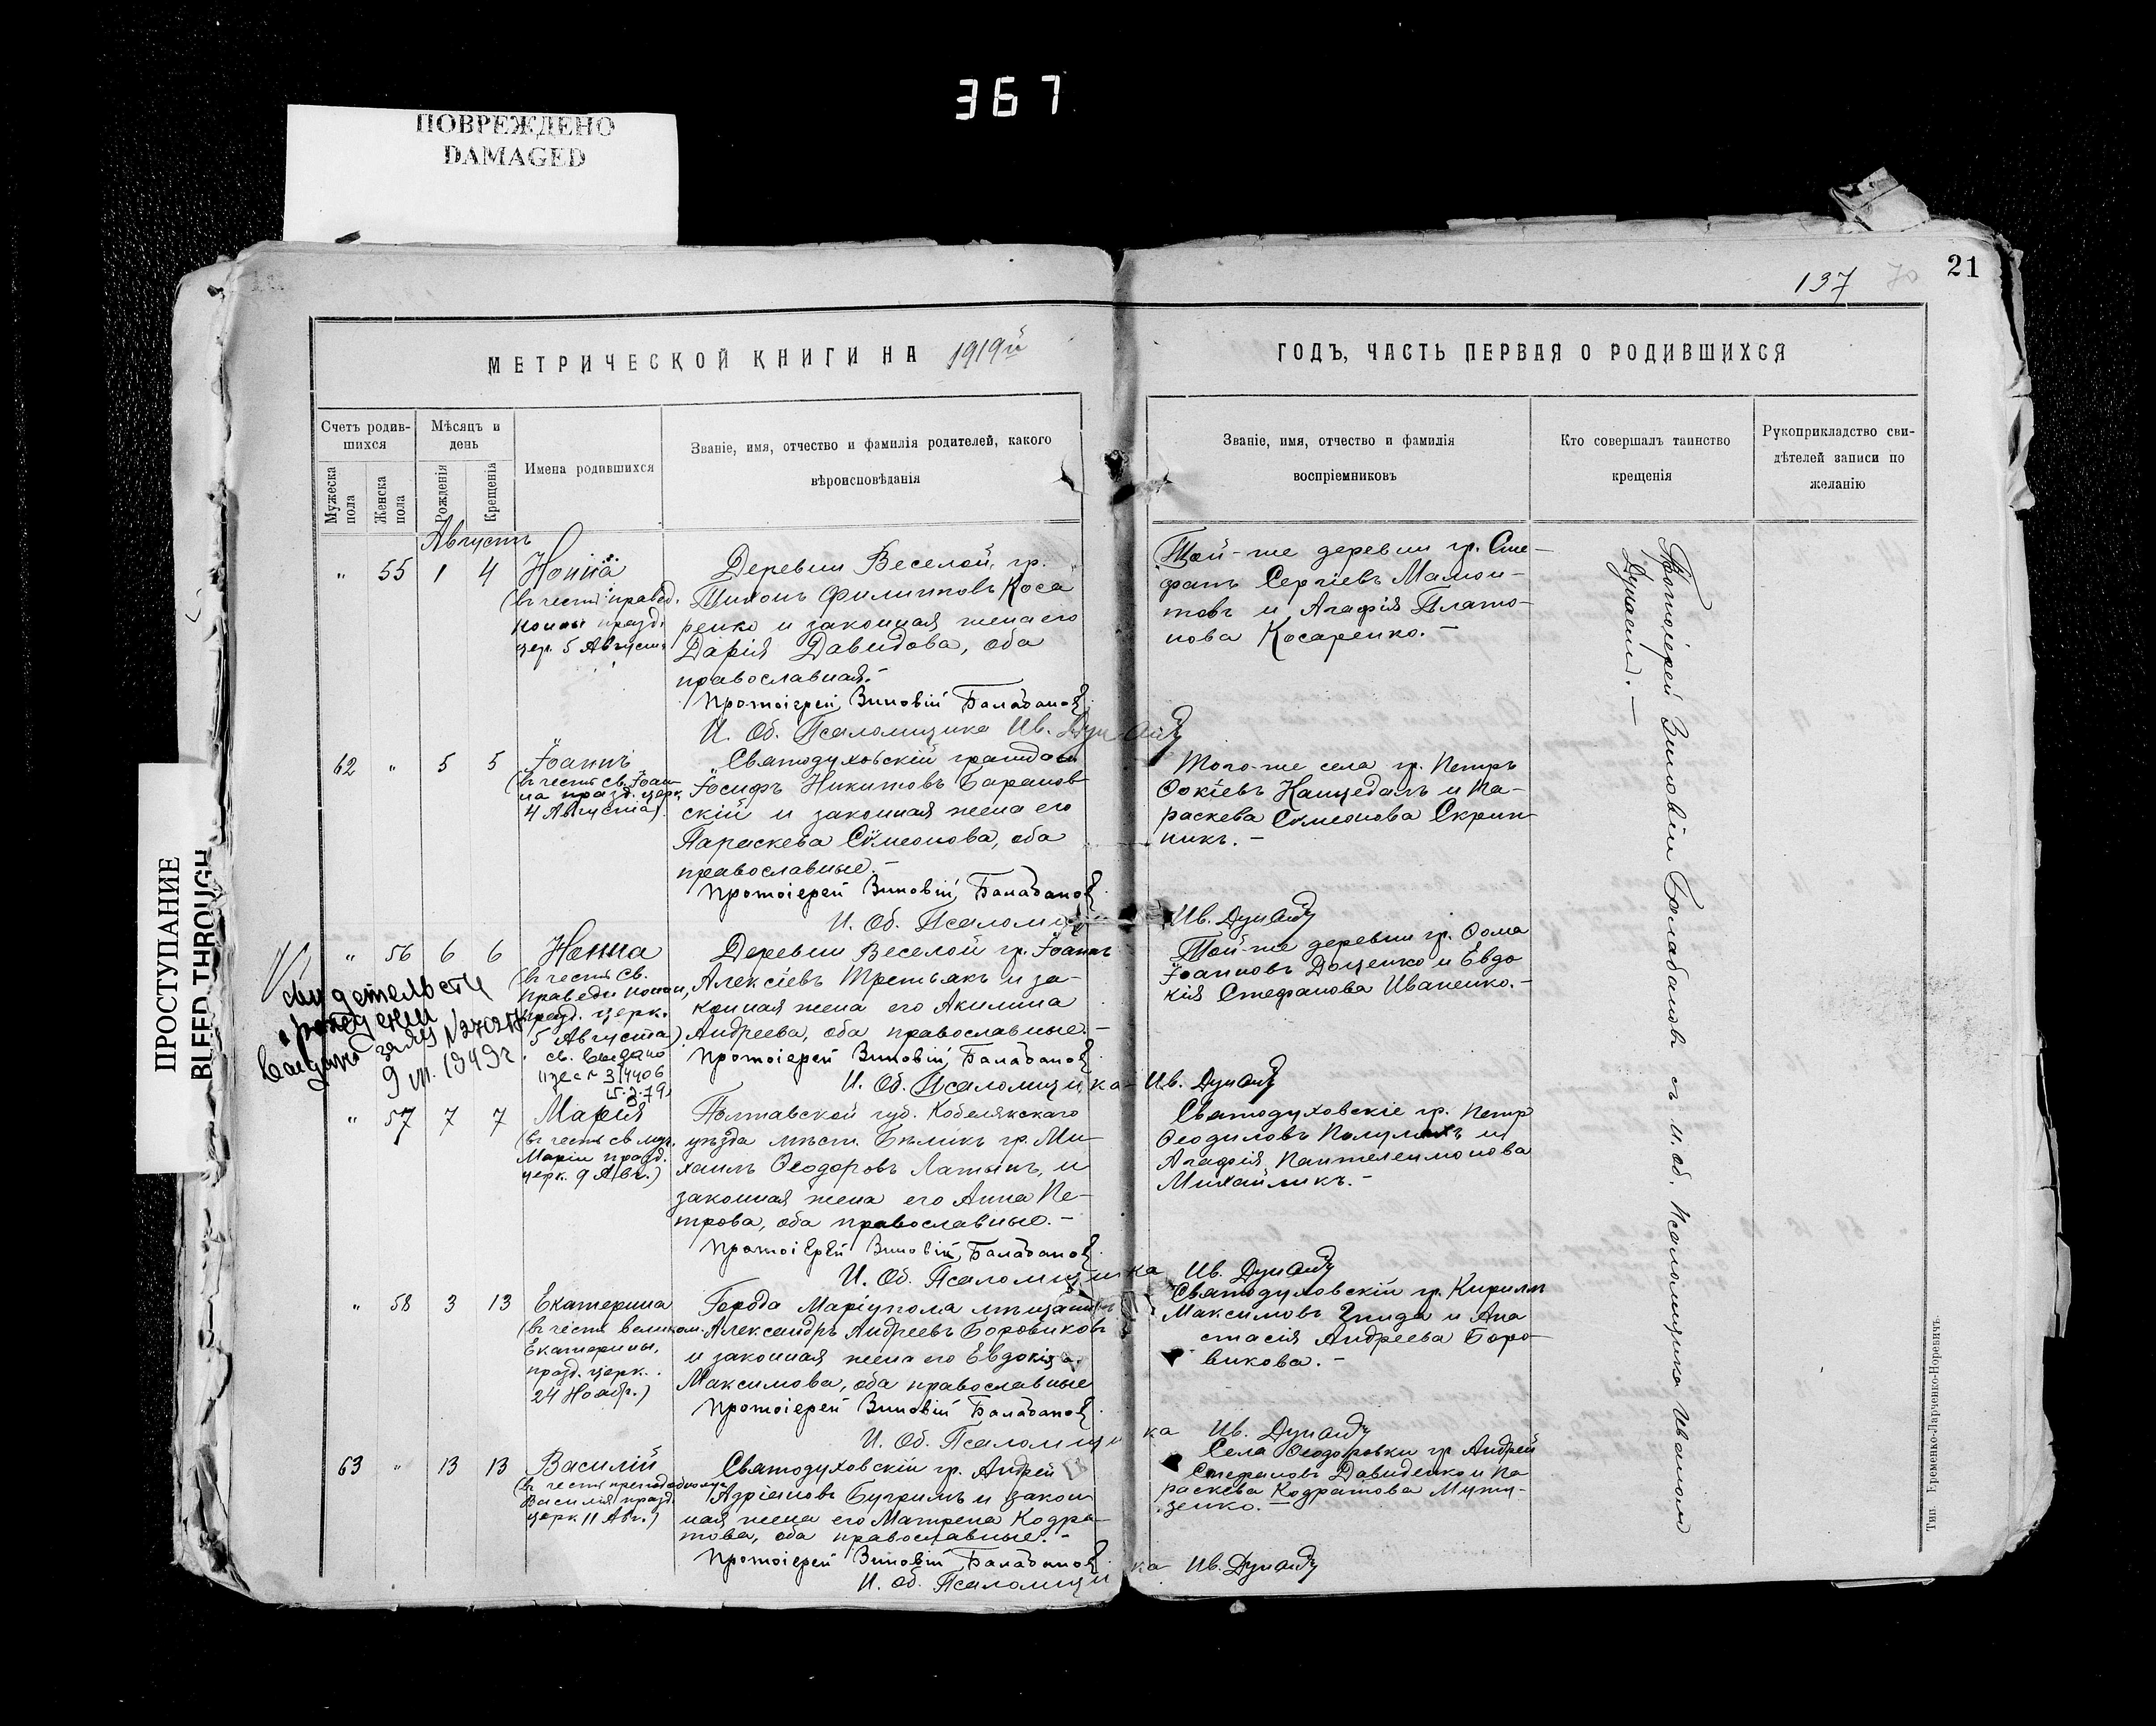 367
ПОВРЕЖДЕНО
DAMAGED
137
70
21
МЕТРИЧЕСКОЙ КНИГИ НА 1919й
ГОДЪ, ЧАСТЬ ПЕРВАЯ О РОДИВШИХСЯ
Счетъ родив-
шихся
Мужеска
пола
Женска
пола
Мѣсяцъ и
день
Рожденія
Крещенія
Имена родившихся
Званіе, имя, отчество и фамилія родителей, какого
вѣроисповѣданія
Званіе, имя, отчество и фамилія
воспріемниковъ
Кто совершалъ таинство
крещенія
Рукоприкладство сви-
дѣтелей записи по
желанію
Августъ
" 55 1 4
Нонна
(въ честь правед.
нонны празд.
цер. 5 Август.
Деревни Веселой, гр.
Тихонъ Филиповъ Коса
ренко и законная жена его
Дарія Давидова, оба
православная.
Протоіерей Зиновій Балабановъ
И. Об. Псаломщика Ив.
Той-же деревни гр. Сте-
фанъ Сергіевъ Мамон-
товъ и Агафія Плато-
нова Косаренко.-
Протоіерей Зиновій Балабановъ съ и. об. Псаломщика Иваномъ
62 " 5 5
Іоаннъ
(въ честь св. Іоан-
на празд. церк.
4 Августа)
Святодуховскій граждан.
Іосифъ Никитовъ Баранов
скій и законная жена его
Параскева Сѵмеонова, оба
православные.-
Протоіерей Зиновій Балабановъ
И. Об. Псаломщ
Ив.
Того-же села гр. Петръ
Фокіевъ и Па-
раскева Сѵмеонова Скрип
никъ.-
" 56 6 6
Нонна
(въ честь св.
праведн нонны,
празд. церк.
5 Августа)
св. выдано
314406
Деревни Веселой гр. Іоаннъ
Алексіевъ Третьякъ и за-
конная жена его Акилина
Андреева, оба православные.-
Протоіерей Зиновій Балабановъ
И. Об. Псаломщика Ив.
Той-же деревни гр. Фома
Іоанновъ Доценко и Евдо
кія Стефанова Иваненко.-
свидетельств
о рождении
выдано
9 VII. 1949г
ПРОСТУПАНИЕ
BLEED THROUGH
" 57 7 7
Марія
(въ честь св
Маріи празд.
церк. 9 Авг.)
Полтавской губ. Кобелякскаго
уѣзда мѣст. Бѣликъ гр. Ми-
хаилъ Ѳеодоровъ и
законная жена его Анна Пе-
трова, оба православные.-
Протоіерей Зиновій Балабановъ
И. Об. Псаломщика Ив.
Святодуховскіе гр. Петр
и
Агафія Пантелеимонова
Михайликъ.-
" 58 3 13
Екатерина
(въ честь великом.
Екатерины,
празд. церк.
24 Ноябр.)
Города Маріуполя мѣщанинъ
Александръ Андреевъ Боровиковъ
и законная жена его Евдокія
Максимова, оба православные
Протоіерей Зиновій Балабановъ
И. Об. Псаломщика Ив.
Святодуховскій гр. Кириллъ
Максимовъ и Ана
стасія Андреева Боро-
викова.-
63 " 13 13
Василій
(въ честь преподобному
Василія празд.
церк. 11 Авг.)
Святодуховскій гр. Андрей
Адріановъ Бугримъ и закон
ная жена его Матрена Кодра-
това, оба православные.-
Протоіерей Зиновій Балабановъ
И. Об. Псаломщика Ив.
Села Ѳеодоровки гр. Андрей
Стефановъ Давиденко и Па
раскева Кодратова
Тип. Еременко-Ларченко-Норевичъ.